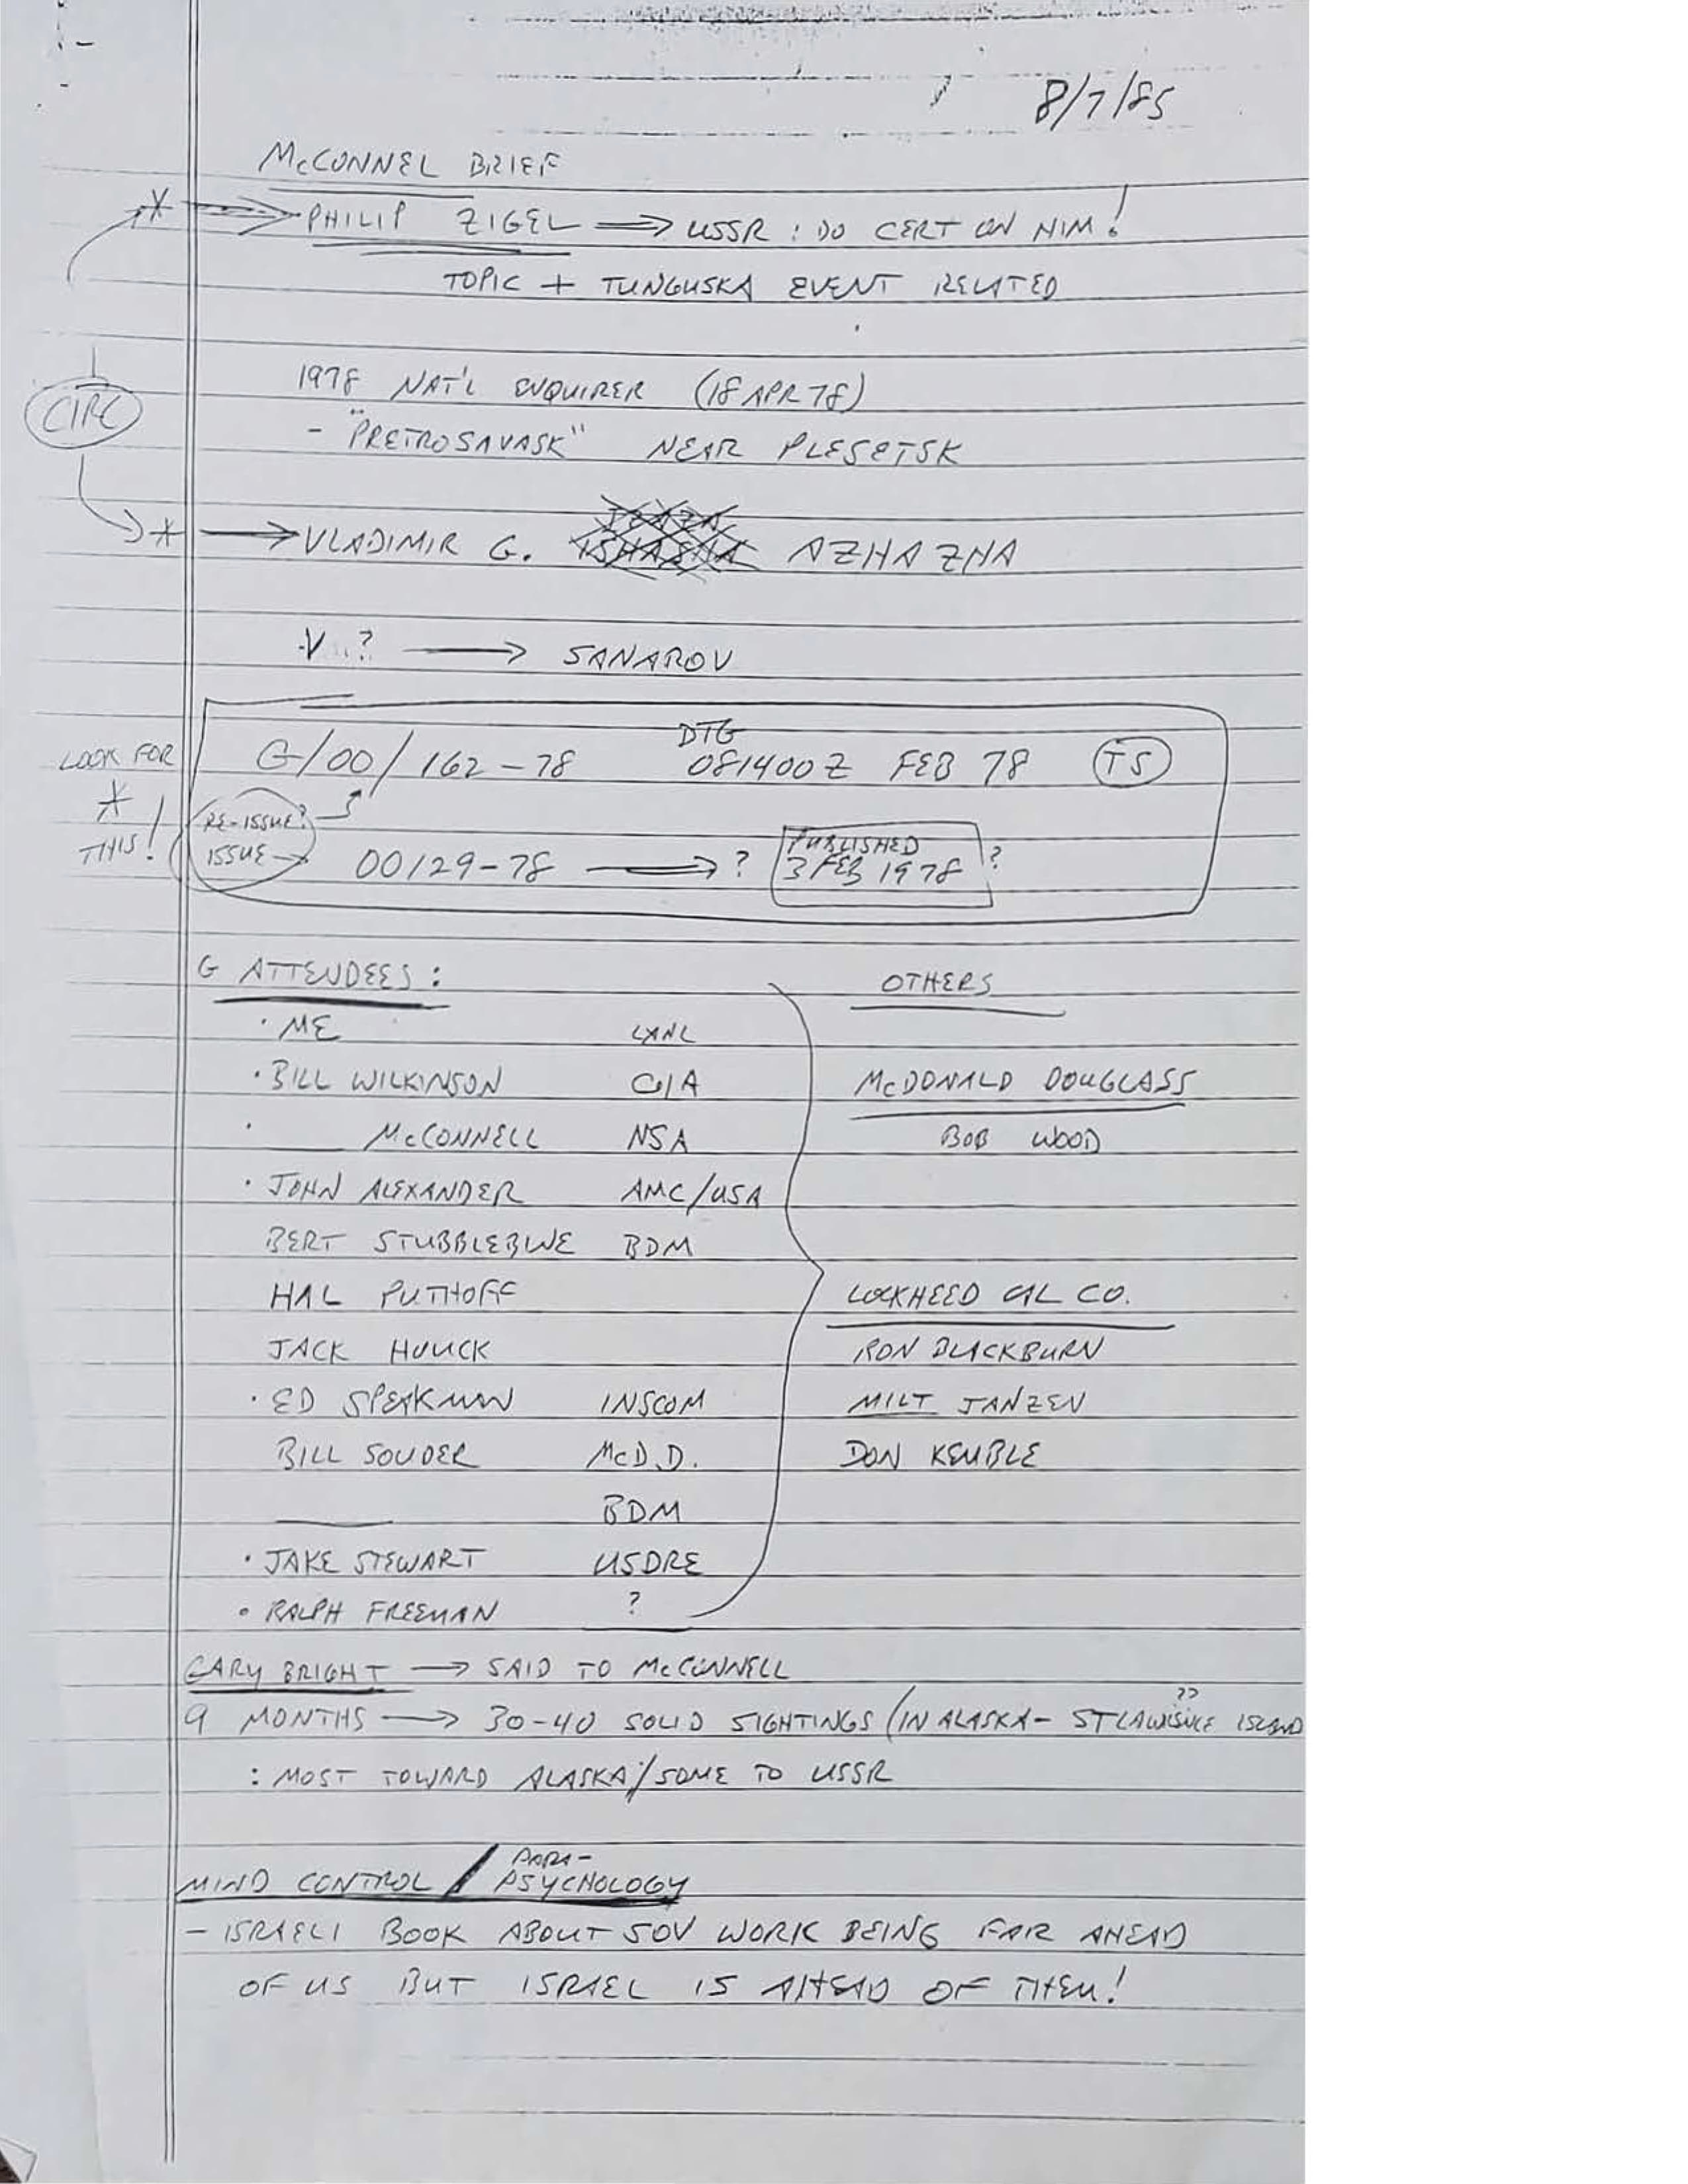 8/7/85
McCONNEL BRIEF
* PHILIP ZIGEL → USSR : DO CERT ON HIM!
TOPIC + TUNGUSKA EVENT RELATED
1978 NAT'L ENQUIRER (18 APR 78)
CIRC
- "PRETROSAVASK" NEAR PLESETSK
* → VLADIMIR G. AZHAZHA
V ? → SANAROV
DTG
G/00/162-78 081400Z FEB 78 TS
LOOK FOR
* THIS!
RE-ISSUE?
ISSUE → 00129-78 → ? PUBLISHED
3 FEB 1978 ?
G ATTENDEES :
· ME LANL
· BILL WILKINSON CIA
· ___ McCONNELL NSA
· JOHN ALEXANDER AMC/USA
BERT STUBBLEBINE BDM
HAL PUTHOFF
JACK HOUCK
· ED SPEAKMAN INSCOM
BILL SOUDER McD.D.
___ BDM
· JAKE STEWART USDRE
· RALPH FREEMAN ?
OTHERS
McDONALD DOUGLASS
BOB WOOD
LOCKHEED CAL CO.
RON BLACKBURN
MILT JANZEN
DON KEMBLE
GARY BRIGHT → SAID TO McCONNELL
??
9 MONTHS → 30-40 SOLID SIGHTINGS (IN ALASKA - ST ISLAND
: MOST TOWARD ALASKA/SOME TO USSR
MIND CONTROL / PARA-
PSYCHOLOGY
- ISRAELI BOOK ABOUT SOV WORK BEING FAR AHEAD
OF US BUT ISRAEL IS AHEAD OF THEM!